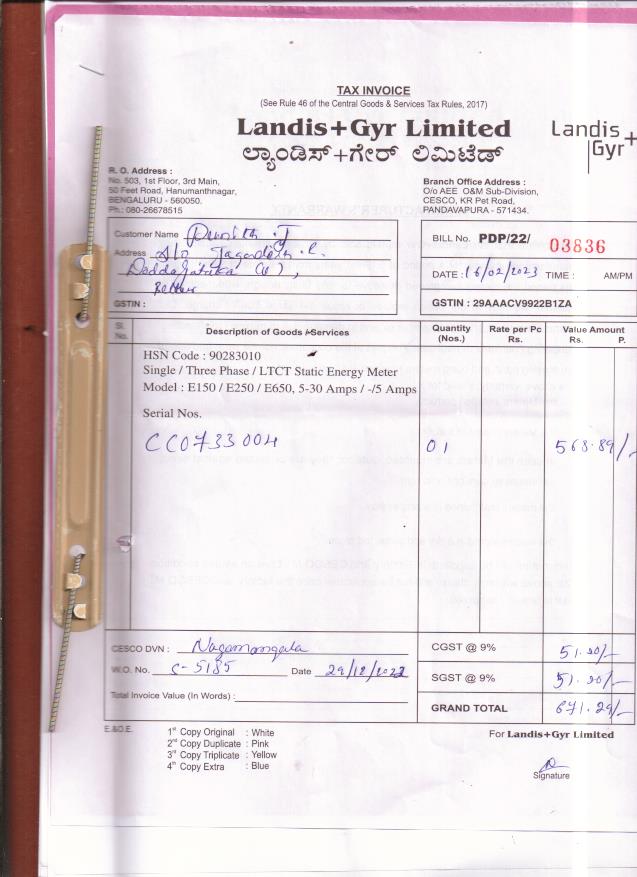 TAX INVOICE
(See Rule 46 of the Central Goods & Services Tax Rules, 2017)
Landis+Gyr Limited
ಲ್ಯಾಂಡಿಸ್+ಗೇರ್ ಲಿಮಿಟೆಡ್
Landis+
Gyr
R. O. Address :
No. 503, 1st Floor, 3rd Main,
50 Feet Road, Hanumanthnagar,
BENGALURU - 560050.
Ph.: 080-26678515
Branch Office Address :
O/o AEE O&M Sub-Division,
CESCO, KR Pet Road,
PANDAVAPURA - 571434.
Customer Name
Address S/o
GSTIN :
BILL No. PDP/22/ 03836
DATE : 16/02/2023 TIME : AM/PM
GSTIN : 29AAACV9922B1ZA
Sl. No. Description of Goods / Services Quantity (Nos.) Rate per Pc Rs. Value Amount Rs. P.
HSN Code : 90283010
Single / Three Phase / LTCT Static Energy Meter
Model : E150 / E250 / E650, 5-30 Amps / -/5 Amps
Serial Nos.
CC0733004 01 568.89/-
CESCO DVN : Nagamangala
W.O. No. S-5185 Date 29/12/2022
Total Invoice Value (In Words) :
CGST @ 9% 51.20/-
SGST @ 9% 51.20/-
GRAND TOTAL 671.29/-
E.&O.E.
1st Copy Original : White
2nd Copy Duplicate : Pink
3rd Copy Triplicate : Yellow
4th Copy Extra : Blue
For Landis+Gyr Limited
Signature